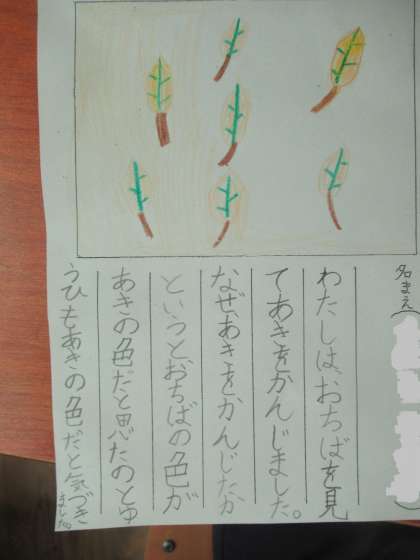 名まえ(
わたしは、おちばを見
てあきをかんじました。
なぜ、あきをかんじたか
というと、おちばの色が
あきの色だと思たのとゆ
うひもあきの色だと気づき
ました。